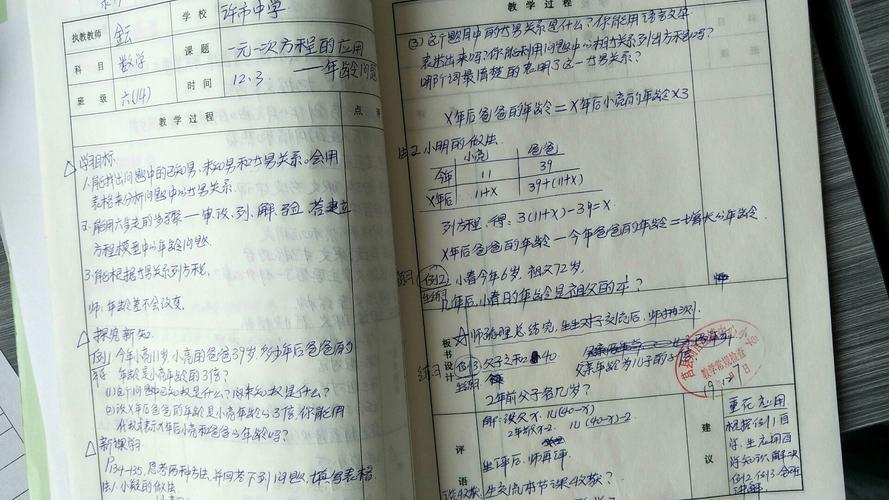 执教教师 金云 学校 许市中学
科目 数学 课题 一元一次方程的应用
——年龄问题
班级 六(14) 时间 12.3
教学过程
△学习目标
1.能找出问题中的已知量、未知量和等量关系。会用
表格来分析问题中的等量关系.
2.能用六步走的步骤——审、设、列、解、验、答建立
方程模型中的年龄问题.
3.能根据等量关系列方程.
师:年龄差不会改变.
△探究新知.
例1 今年小亮11岁,小亮的爸爸39岁,多少年后爸爸的
年龄是小亮年龄的3倍?
(1)这个问题中已知数是什么?问未知数是什么?
(2)设X年后爸爸的年龄是小亮年龄的3倍,你能用
代数式表示X年后小亮和爸爸的年龄吗?
△新课学习
P134-135,思考两种方法,并回答下列问题,填写表格.
法1:小敏的做法
教学过程
(3)这个题目中的等量关系是什么?你能用语言文字
表述出来吗?你能利用问题中的相等关系列出方程吗?
哪个词最清楚的表明了这一等量关系?
X年后爸爸的年龄=X年后小亮的年龄×3
法2.小明的做法.
小亮 爸爸
今年 11 39
X年后 11+X 39+(11+X)
列方程,得:3(11+X)-39=X.
X年后爸爸的年龄-今年爸爸的年龄=增长的年龄.
练习 例2 小春今年6岁,祖父72岁.
几年后,小春的年龄是祖父的¼?
板书设计
☆师梳理总结完,生生对子交流后,师
练习 例3 父子之和40
父亲年龄为儿子的
2年前父子各几岁?
解:设父X.
2年前X-2.
评语
生评后,师再评.
生交流本节课收获?
建议
重在应用
根据例1自
学,生先用自
学知识,解决
例2,例3,
教学常规检查